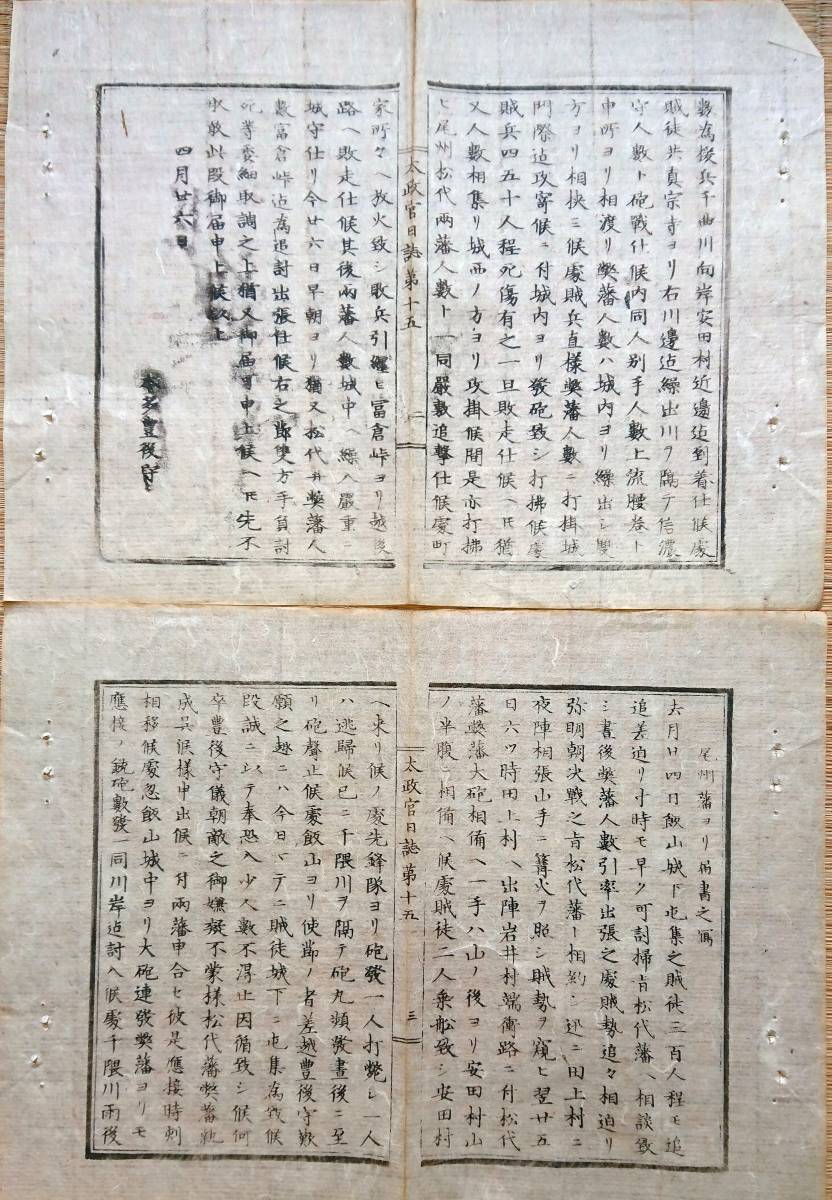 数為援兵千曲川向岸安田村近邊迠到着仕候處
賊徒共真宗寺ヨリ右川邊迠繰出川ヲ隔テ信濃
守人数ト砲戰仕候内同人別手人数上流腰巻ト
申所ヨリ相渡リ弊藩人数ハ城内ヨリ繰出シ雙
方ヨリ相挾ミ候處賊兵直様弊藩人数ニ打掛城
門際迠攻寄候ニ付城内ヨリ發砲致シ打拂候處
賊兵四五十人程死傷有之一旦敗走仕候ヘ𪜈猶
又人数相集リ城西ノ方ヨリ攻掛候間是亦打拂
ヒ尾州松代兩藩人数ト一同嚴敷追撃仕候處町
太政官日誌第十五
二
家所々ヘ放火致シ敗兵引纒ヒ富倉峠ヨリ越後
路ヘ敗走仕候其後兩藩人数城中ヘ繰入嚴重
城守仕リ今廿六日早朝ヨリ猶又松代并弊藩人
數富倉峠迠為追討出張仕候右之節雙方手負討
死等委細取調之上猶又御届可申上候ヘ𪜈先不
取敢此段御届申上候以上
四月廿六日
本多豊後守
尾州藩ヨリ届書之冩
去月廿四日飯山城下屯集之賊徒三百人程モ追
追差迫リ寸時モ早ク可討掃旨松代藩ヘ相談致
シ晝後弊藩人数引率出張之處賊勢追々相迫リ
弥明朝決戰之旨松代藩ト相約シ迅ニ田上村ニ
夜陣相張山手ニ篝火ヲ照シ賊勢ヲ窺ヒ翌廿五
日六ツ時田上村ヘ出陣岩井村端衝路ニ付松代
藩弊藩大砲相備ヘ一手ハ山ノ後ヨリ安田村山
ノ半腹ニ相備ヘ候處賊徒二人乗船致シ安田村
太政官日誌第十五
三
ヘ来リ候ノ處先鋒隊ヨリ砲發一人打斃シ一人
ハ逃歸候已ニ千隈川ヲ隔テ砲丸頻發晝後ニ至
リ砲聲止候處飯山ヨリ使節ノ者差越豊後守歎
願之趣ニハ今日マテニ賊徒城下ニ屯集為致候
段誠ニ以テ奉恐入少人数不得止因循致シ候何
卒豊後守儀朝敵之御嫌疑不蒙様松代藩弊藩執
成呉候様申出候ニ付兩藩申合セ彼是應接時刻
相移候處忽飯山城中ヨリ大砲連發弊藩ヨリモ
應接ノ銃砲數發一同川岸迠討入候處千隈川雨後